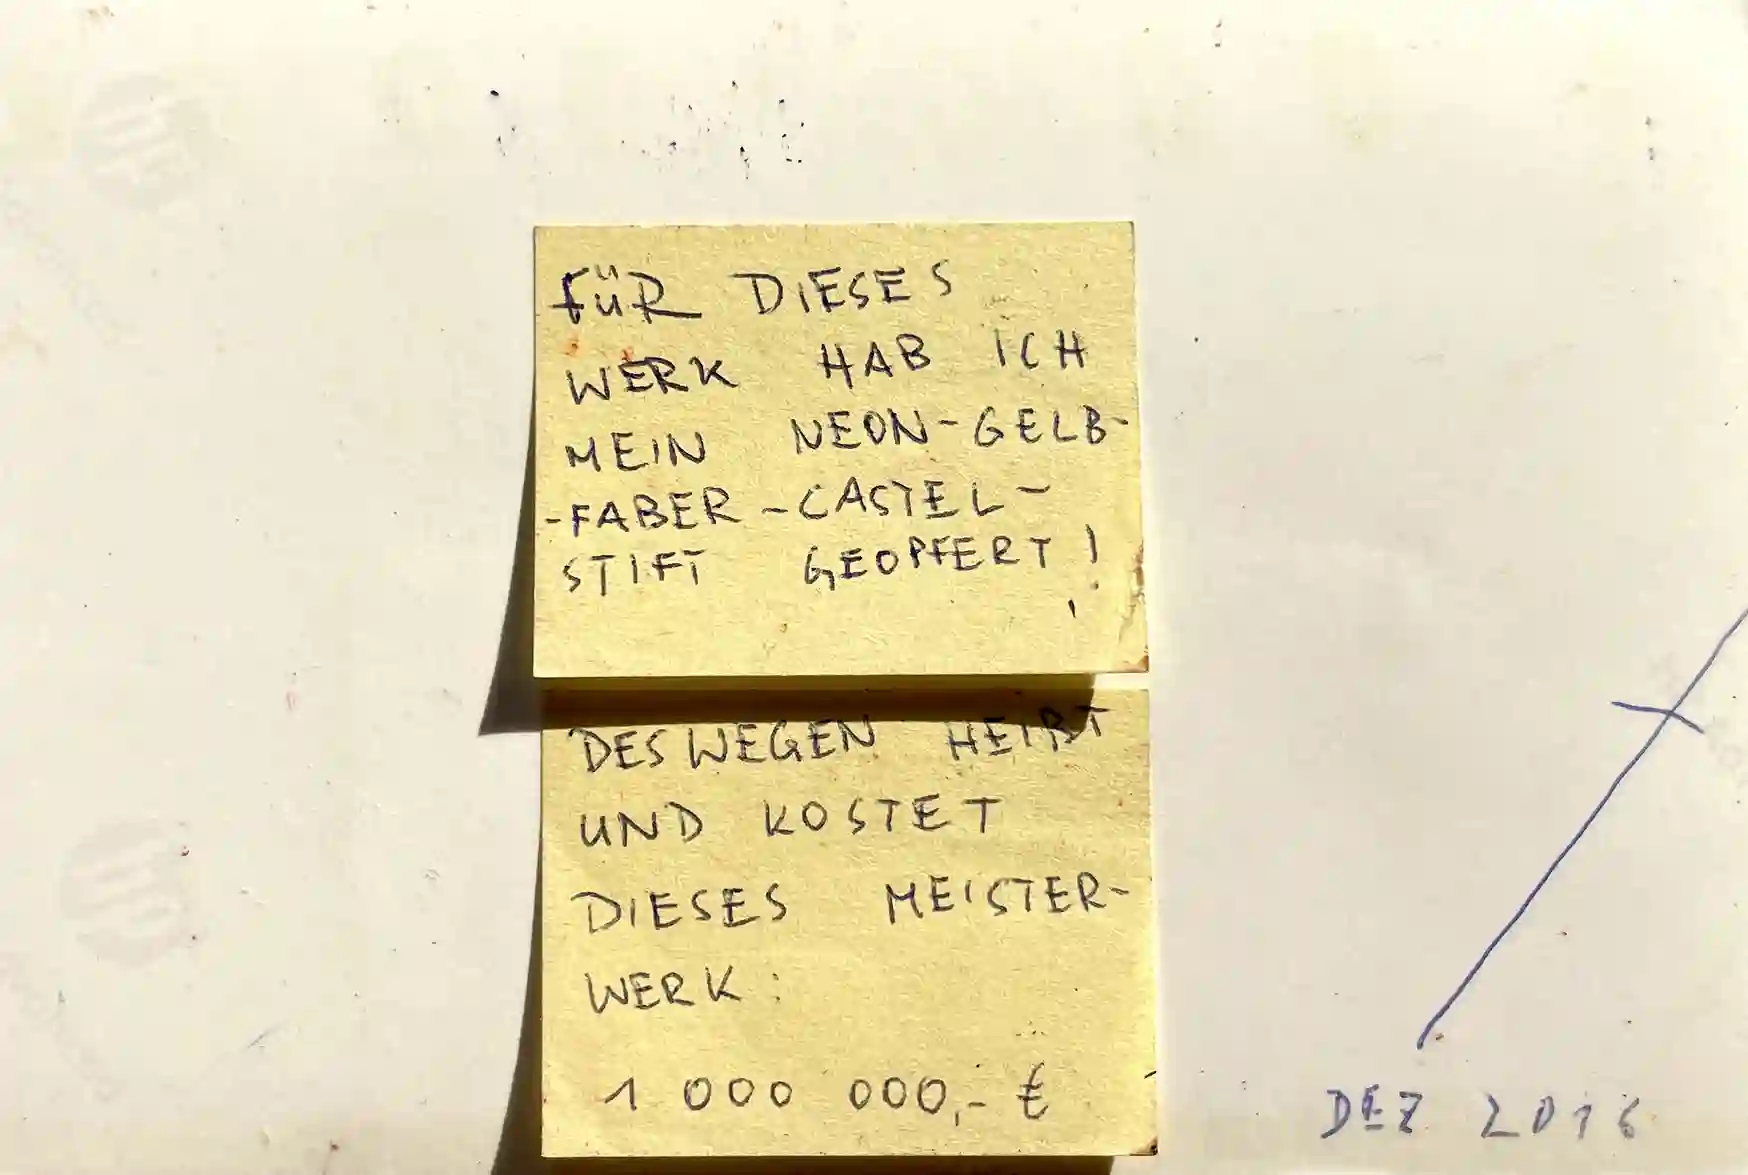 FÜR DIESES
WERK HAB ICH
MEIN NEON-GELB-
-FABER-CASTEL-
STIFT GEOPFERT!
DESWEGEN HEIßT
UND KOSTET
DIESES MEISTER-
WERK:
1 000 000,- €
DEZ 2016